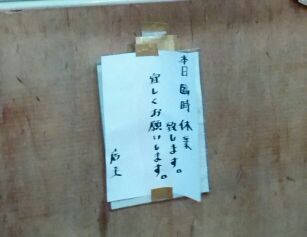 本日臨時休業
致します。
宜しくお願いします。
店主